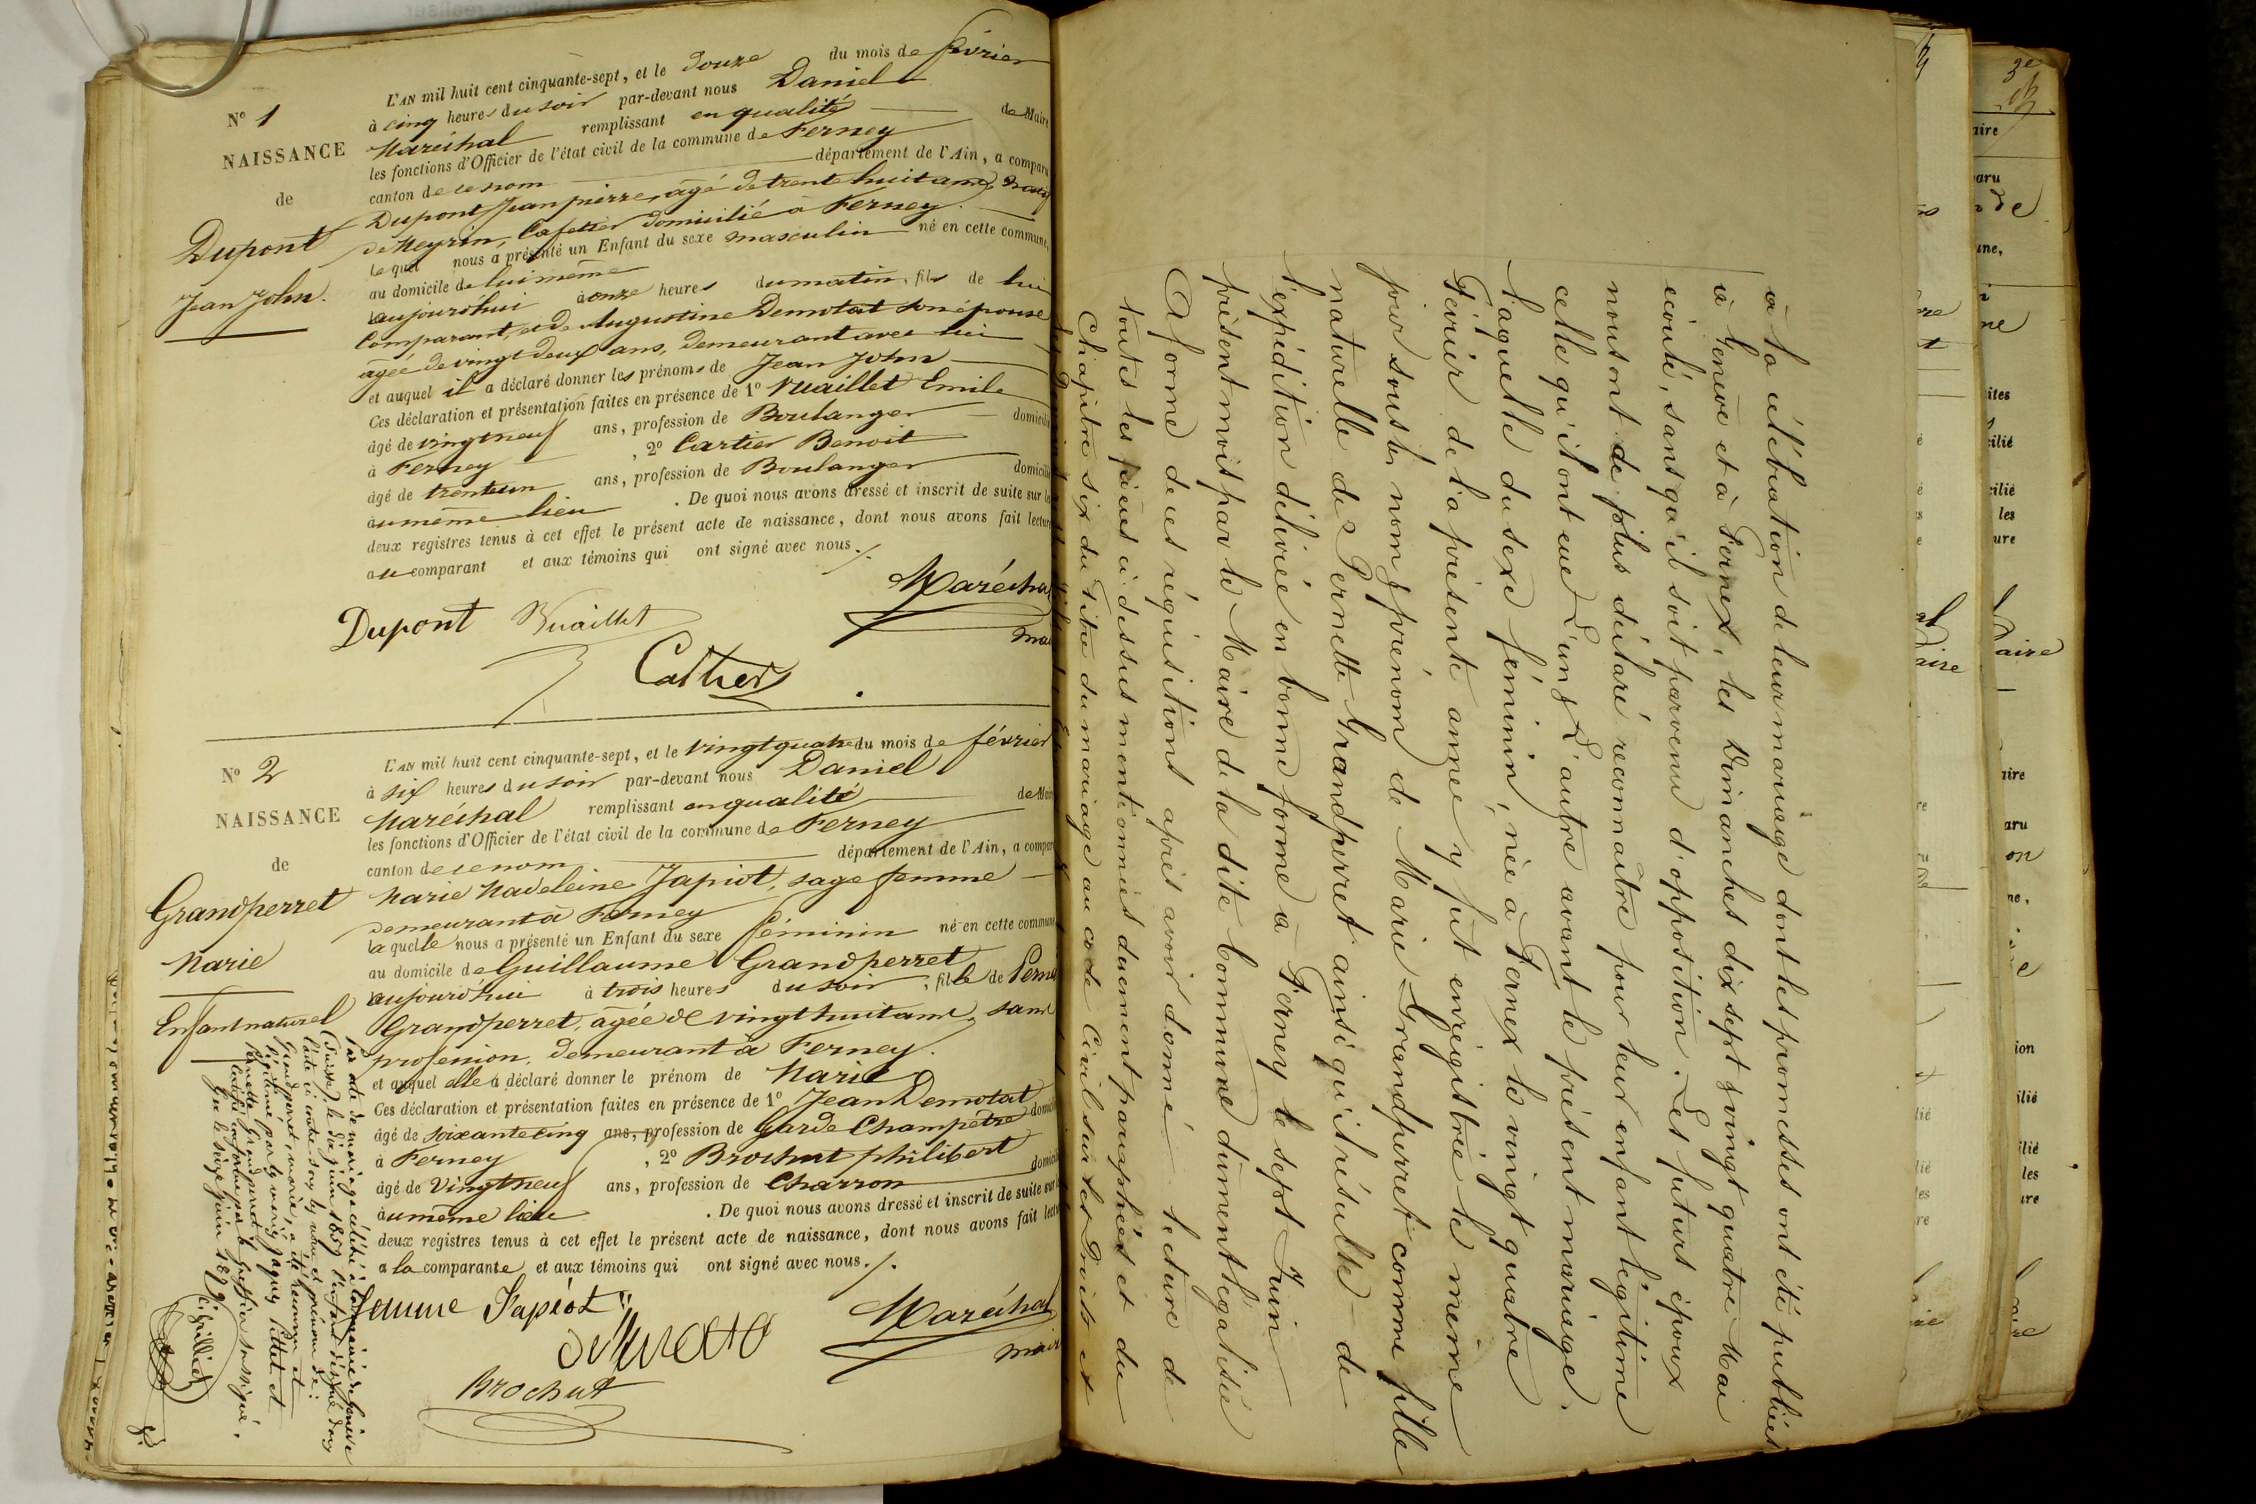 N° 1
NAISSANCE
de
Dupont
Jean John.
L'AN mil huit cent cinquante-sept, et le Douze du mois de février
à cinq heures du soir par-devant nous Daniel
Maréchal remplissant en qualité de Maire
les fonctions d'Officier de l'état civil de la commune de Ferney
canton de ce nom département de l'Ain, a comparu
Dupont Jean pierre, âgé de trente huit ans, natif
de Meyrin, Cafetier domicilié à Ferney.
lequel nous a présenté un Enfant du sexe masculin né en cette commune,
au domicile de lui même
aujourd'hui à onze heures du matin, fils de lui
Comparant, et de Augustine Demotat son épouse
âgée de vingt deux ans, demeurant avec lui
et auquel il a déclaré donner les prénoms de Jean John
Ces déclaration et présentation faites en présence de 1° Vuaillet Emile
âgé de vingt neuf ans, profession de Boulanger domicilié
à Ferney, 2° Cartier Benoit
âgé de trente un ans, profession de Boulanger domicilié
au même lieu. De quoi nous avons dressé et inscrit de suite sur les
deux registres tenus à cet effet le présent acte de naissance, dont nous avons fait lecture
au comparant et aux témoins qui ont signé avec nous./.
Maréchal
Dupont Vuaillet
Cartier
N° 2
NAISSANCE
de
Grandperret
Marie
Enfant naturel
L'AN mil huit cent cinquante-sept, et le vingt quatre du mois de février
à six heures du soir par-devant nous Daniel
Maréchal remplissant en qualité de Maire
les fonctions d'Officier de l'état civil de la commune de Ferney
canton de ce nom département de l'Ain, a comparu
Marie Madeleine Japiot, sage femme
demeurant à Ferney
laquelle nous a présenté un Enfant du sexe féminin né en cette commune
au domicile de Guillaume Grandperret
aujourd'hui à trois heures du soir, fille de Perne
Grandperret, âgée de vingt huit ans, sans
profession, demeurant à Ferney.
et auquel elle a déclaré donner le prénom de Marie
Ces déclaration et présentation faites en présence de 1° Jean Demotat
âgé de soixante cinq ans, profession de Garde Champêtre domicilié
à Ferney, 2° Brochut philibert
âgé de vingt neuf ans, profession de Charron domicilié
au même lieu. De quoi nous avons dressé et inscrit de suite sur
deux registres tenus à cet effet le présent acte de naissance, dont nous avons fait lecture
a la comparante et aux témoins qui ont signé avec nous./.
femme Japiot
Maréchal
maire
Brochut
Par acte de mariage célébré à la mairie de Genève
(Suisse) le dix juin 1857 l'enfant désigné dans
l'acte ci contre sous les nom et prénom de:
Grandperret, marie, a été reconnu et
légitimé par les mariés Jaques Pittet et
Pernette Grandperret
Gex le seize juin 1859
à la célébration de leur mariage dont les promesses ont été publiées
à Genève et à Fernex, les Dimanches dix sept & vingt quatre Mai
écoulé, sans qu'il soit parvenu d'opposition. Les futurs époux
nous ont de plus déclaré reconnaître pour leur enfant légitime
celle qu'ils ont eue L'un & L'autre avant le présent mariage.
Laquelle du sexe féminin, née à Fernex le vingt quatre
Février de la présente année y fut enrégistrée le même
jour sous les nom & prénom de Marie Grandperret comme fille
naturelle de Pernette Grandperret ainsi qu'il résulte de
l'expédition délivrée en bonne forme à Ferney le sept Juin
présent mois par le Maire de la dite Commune dûment légalisée
A forme de ces réquisitions après avoir donné lecture de
toutes les pièces ci-dessus mentionnées duement paraphées et du
Chapitre six du Titre du mariage au code Civil sur les Droits et